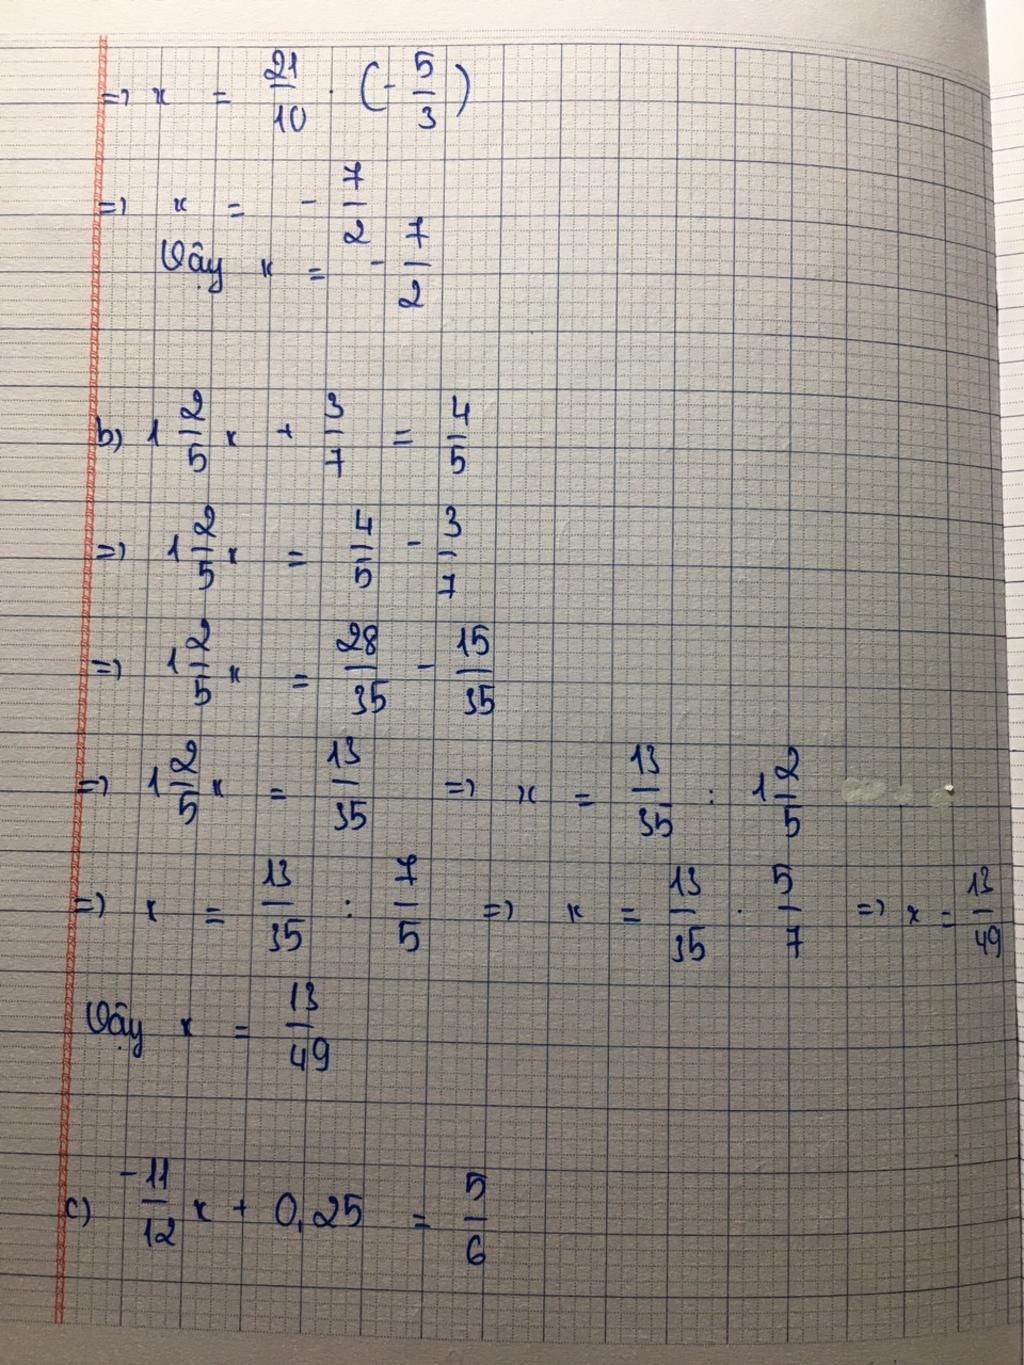 => x = 21/10 . (- 5/3)
=> x = - 7/2
Vậy x = - 7/2
b) 1 2/5 x + 3/7 = 4/5
=> 1 2/5 x = 4/5 - 3/7
=> 1 2/5 x = 28/35 - 15/35
=> 1 2/5 x = 13/35 => x = 13/35 : 1 2/5
=> x = 13/35 : 7/5 => x = 13/35 . 5/7 => x = 13/49
Vậy x = 13/49
c) -11/12 x + 0,25 = 5/6